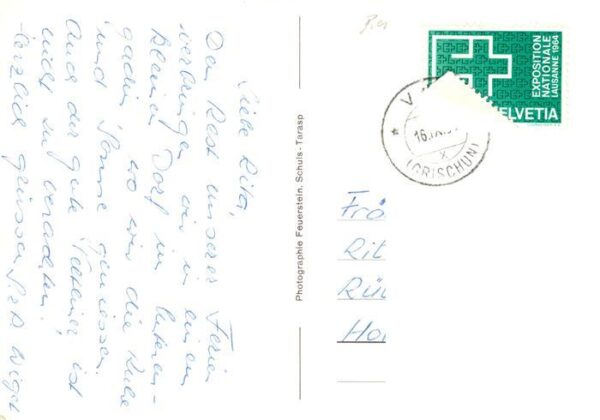 Liebe Rita,
Den Rest unserer Ferien
verbringen wir in einem
kleinen Dorf im Unteren-
gadin, wo wir die Ruhe
und Sonne geniessen.
Auch der gute Veltliner ist
nicht zu verachten!
Herzlich grüssen
Photographie Feuerstein, Schuls-Tarasp
EXPOSITION
NATIONALE
LAUSANNE 1964
HELVETIA
V
16.
X
(GRISCHUN)
Frö
Rit
Rü
Ho